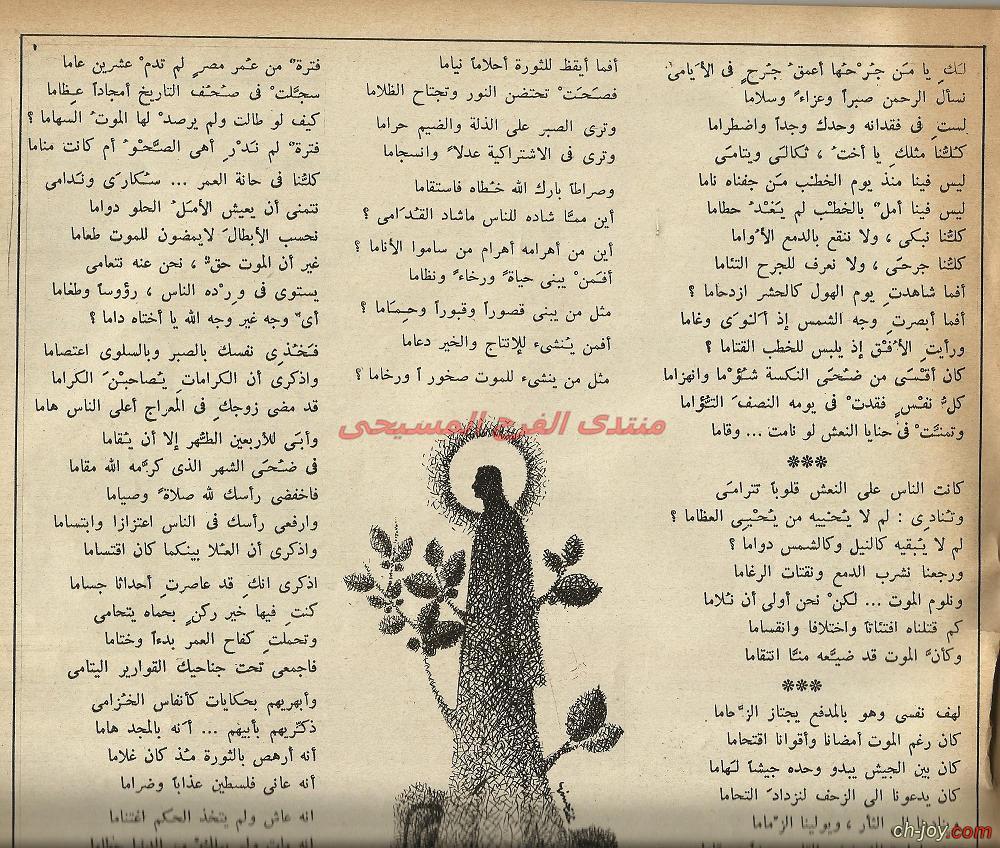 لك ِ يا مَن جُرْحُها أعمق ُ جُرح ٍ فى الأيامى
نسأل الرحمن صبراً وعزاء ً وسلاما
لست ِ فى فقدانه وحدك وجداً واضطراما
كلنا مثلك ِ يا أخت ُ ، ثكالَى ويتامَى
ليس فينا منذ يوم الخطْب مَن جفناه ناما
ليس فينا أمل ٌ بالخطْب لم يَغْد ُ حطاما
كلنا نبكى ، ولا ننقع بالدمع الأُواما
كلنا جرحَى ، ولا نعرف للجرح التئاما
أفما شاهدت ِ يوم الهول كالحشر ازدحاما ؟
أفما أبصرت ِ وجه الشمس إذ آلنوَى وغاما
ورأيت ِ الأُفْق إذ يلبس للخطب القتاما ؟
كان أقْسَى من ضُحَى النكسة شُؤْما وانهزاما
كلُّ نفْس ٍ فقدت ْ فى يومه النصف َ التُّؤاما
وتمنَّت ْ فى حنايا النعش لو نامت ... وقاما
***
كانت الناس على النعش قلوباً تترامَى
وتُنادِى : لم لا يُحْييه من يُحْيِى العظاما ؟
لم لا يُبقيه كالنيل وكالشمس دواما ؟
ورجعنا نشرب الدمع ونقتات الرغاما
ونلوم الموت ... لكن ْ نحن أولى أن نُلاما
كم قتلناه افتئاتاً واختلافا وانقساما
وكأن َّ الموت قد ضيَّعه منَّا انتقاما
***
لهف نفسى وهو بالمدفع يجتاز الزِّحاما
كان رغم الموت أمضانا وأقوانا اقتحاما
كان بين الجيش يبدو وحده جيشاً لَهاما
كان يدعونا الى الزحف لنزداد َ التحاما
الى الثأر ، ويولينا الزماما
أفما أيقظ للثورة أحلاماً نياما
فصَحَت ْ تحتضن النور وتجتاح الظلاما
وترى الصبر على الذلة والضيم حراما
وترى فى الاشتراكية عدلا ً وانسجاما
وصراطاً بارك الله خُطاه فاستقاما
أين ممَّا شاده للناس ماشاد القُدَامى ؟
أين من أهرامه أهرام من ساموا الأناما ؟
أفمَن ْ يبنى حياة ً ورخاء ً ونظاما
مثل من يبنى قصوراً وقبوراً وحِمَاما ؟
أفمن يُنشىء للإنتاج والخير دعاما
مثل من ينشىء للموت صخور ا ورخاما ؟
منتدى الفرح المسيحى
فترة ٌ من عُمر مصر ٍ لم تدم ْ عشرين عاما
سجَّلت ْ فى صُحُف التاريخ أمجاداً عِظاما
كيف لو طالت ولم يرصد ْ لها الموت ُ السهاما ؟
فترة ٌ لم نَدْر ِ أهى الصَّحْو ُ أم كانت مناما
كلنا فى حانة العمر ... سُكارَى ونَدامى
نتمنى أن يعيش الأمَل ُ الحلو دواما
نحسب الأبطال َ لايمضون للموت طعاما
غير أن الموت حق ٌّ ، نحن عنه نتعامى
يستوى فى وِرْده الناس ، رؤوساً وطغاما
أى ُّ وجه غير وجه الله يا أختاه داما ؟
فخُذى نفسك بالصبر وبالسلوى اعتصاما
واذكرى أن الكرامات ِ يُصاحبْن َ الكراما
قد مضى زوجك ِ فى المعراج أعلى الناس هاما
وأبَى للأربعين الطُّهر إلا أن يُقاما
فى ضُحَى الشهر الذى كرَّمه الله مقاما
فاخفضى رأسك لله صلاة ً وصياما
وارفعى رأسك فى الناس اعتزازا وابتساما
واذكرى أن العُلا بينكما كان اقتساما
اذكرى انك ِ قد عاصرت ِ أحداثا جساما
كنت ِ فيها خير ركن ٍ بحماه يتحامى
وتحملت ِ كفاح العمر بدءاً وختاما
فاجمعى تحت جناحيك القوارير اليتامى
وأبهريهم بحكايات كأنفاس الخُزامى
ذكِّريهم بأبيهم ... أنه بالمجد هاما
أنه أرهص بالثورة مُذ كان غلاما
أنه عانى فلسطين عذاباً وضراما
انه عاش ولم يتخذ الحكم اغتناما
ch-joy.com